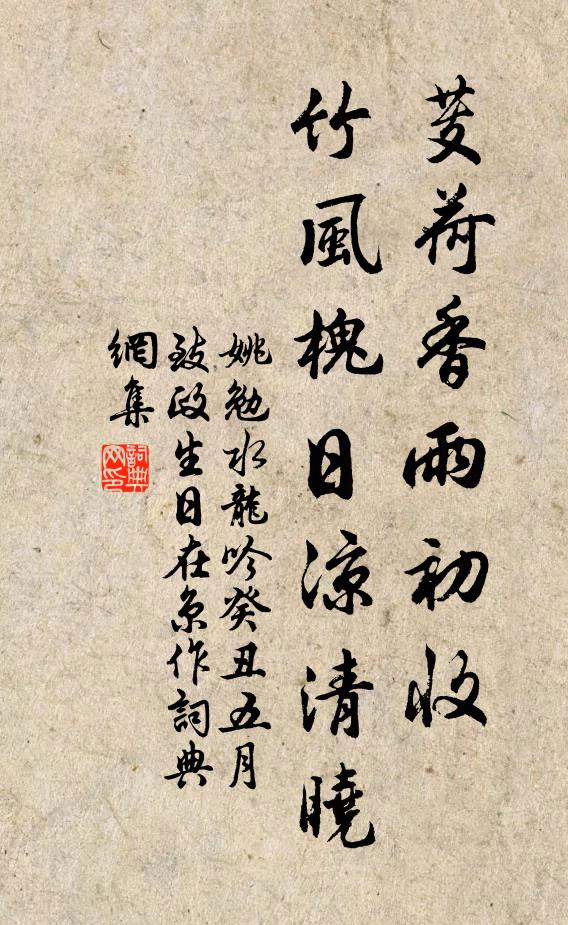 芰荷香雨初收
竹風槐日涼清曉
姚勉水龍吟癸丑五月
致政生日在京作詞典
網集
詞典网印